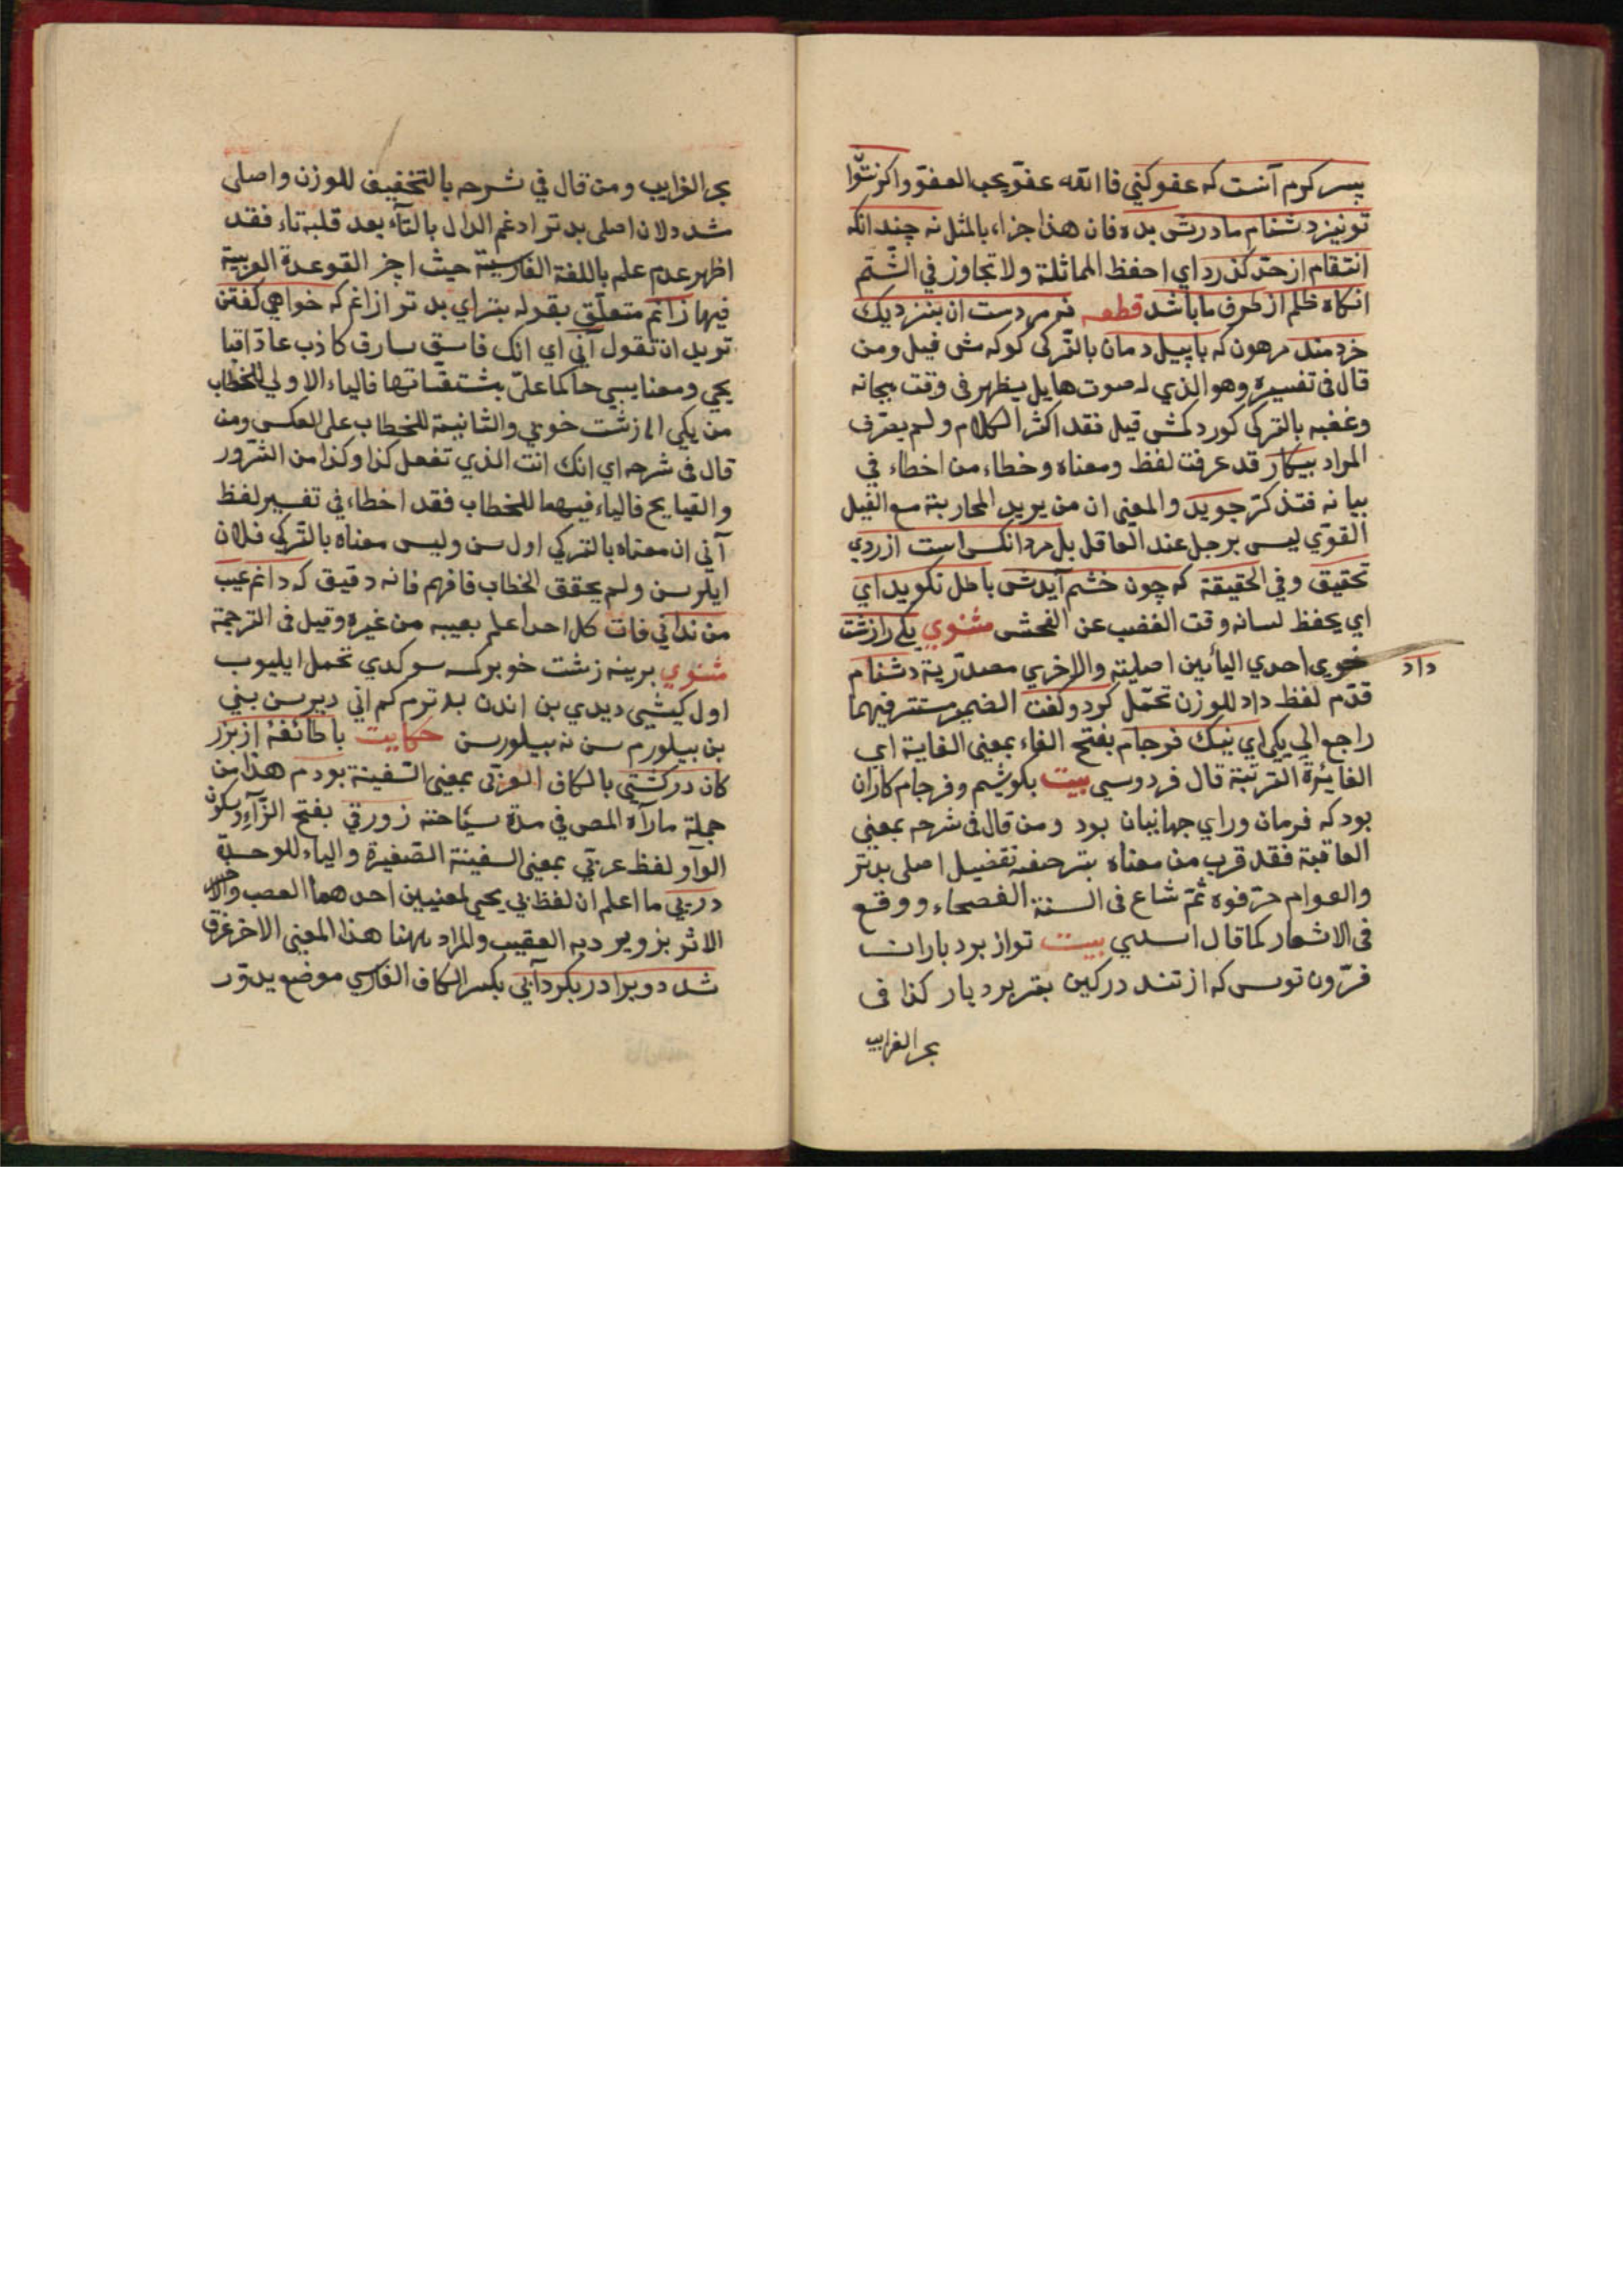 پسر کرم آنست که عفو کنی فاالله عفوّ یحب العفوّ واکر نتوا
تو نیز دشنام مادرش بده فان هذا جزاء بالمثل نه چندانکه
انتقام از حدّ کذرد ای احفظ المماثلة ولا تجاوز فی الشّتم
انکاه ظلم از طرف ما باشد قطعه نه مردست ان بنزدیك
خردمند مرهون که با پیل دمان بالتّرکی کوکرمش فیل ومن
قال فی تفسیره وهو الذی له صوت هایل یظهر فی وقت هیجانه
وغضبه بالترکی کوردکمش فیل فقد اکثر الکلام ولم یعرف
المراد پیکار قد عرفت لفظ ومعناه وخطاء من اخطاء فی
بیانه فتذکّر جوید والمعنی ان من یرید المحاربة مع الفیل
القوّی لیس برجل عند العاقل بل مرد انکس است از روی
تحقیق وفی الحقیقة که چون خشم آیدش باطل نکوید ای
ای یحفظ لسانه وقت الغضب عن الفحش مثنوی یکی را زشت
خوی احدی الیائین اصلیة والاخری مصدّریة دشنام
داد
قدّم لفظ داد للوزن تحمّل کرد وکفت الضمیر مستتر فیهما
راجع الی یکی ای نیك فرجام بفتح الفاء بمعنی الغایة ای
الغایة المرتبة قال فردوسی بیت بکوشیم وفرجام کاران
بود که فرمان ورای جهانبان بود ومن قال فی شرحه بمعنی
العاقبة فقد قرب من معناه بتر صفه تفضیل اصلی بدتر
والعوام حرّفوه ثمّ شاع فی السنة الفصحاء ووقع
فی الاشعار کما قال اسدی بیت تو از بردباران
فزون ترس که از تند در کین بتر بردبار کذا فی
بحر الغرایب
بحر الغرایب ومن قال فی شرحه بالتخفیف للوزن واصلی
شد دلان اصلی بدتر ادغم الدال بالتآء بعد قلبه تاء فقد
اظهر عدم علم باللغة الفارسیة حیث اجر القوعدة العربیة
فیها زانم متعلّق بقوله بتر ای بدتر از انم که خواهی کفتن
ترید ان تقول آنی ای انك فاسق سارق کاذب عادّ اقبا
یحی ومعنایبی حاکما علیّ بمشتقّاتها فالیاء الاولی للخطاب
من یکی را زشت خویی والثانیة للخطاب علی العکس ومن
قال فی شرحه ای انك انت الذی تفعل کذا وکذا من الشّرور
والقبایح فالیاء فیهما للخطاب فقد اخطاء فی تفسیر لفظ
آنی ان معناه بالترکی اول سن ولیس معناه بالترکی فلان
ایلرسن ولم یحقق الخطاب فافهم فانه دقیق که دانم عیب
من ندانی فات کل احد اعلم بعیبه من غیره وقیل فی الترجمة
مثنوی برینه زشت خو برکسه سوکدی تحمل ایلیوب
اول کیشی دیدی بن اندن بدترم کم انی دیرسن بنی
بن بیلورم سن نه بیلورسن حکایت با طائفهٔ از بزر
کان در کشتی بالکاف العربی بمعنی السّفینة بودم هذا من
جملة ما رآه المص فی مدة سیّاحته زورقی بفتح الزّآء وسکون
الواو لفظ عربّی بمعنی السفینة الصّغیرة والیاء للوحدة
در پی ما اعلم ان لفظ پی یجی لمعنیین احدهما العصب والاخر
الاثر بزویر دیه العقیب والمراد ههنا هذا المعنی الاخر غرق
شد دو برادر بکردآبی بکسر الکاف الفارسی موضع یدوّر